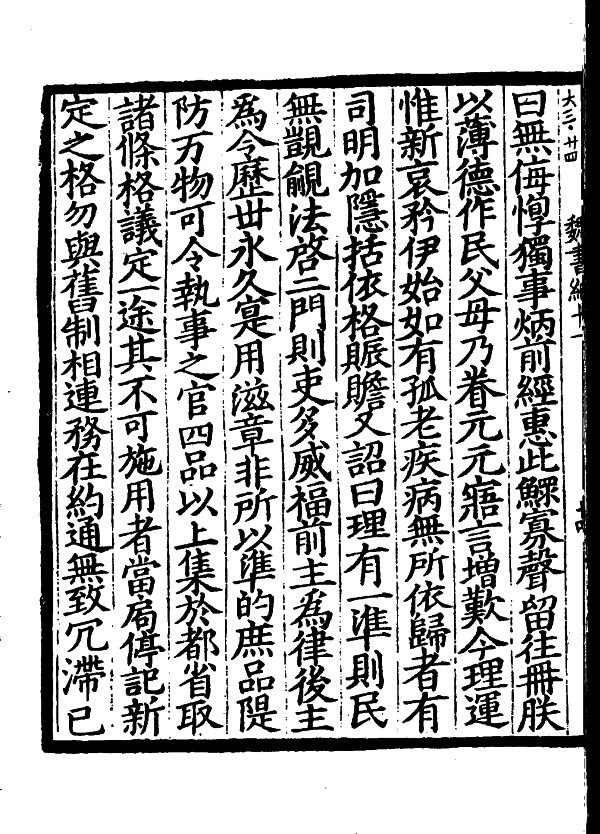 大三·卄四
魏書紀十一
曰無侮惸獨事炳前經惠此鰥寡聲留往冊朕
以薄德作民父母乃眷元元寤言增歎今理運
惟新哀矜伊始如有孤老疾病無所依歸者有
司明加隱括依格賑贍又詔曰理有一準則民
無覬覦法啓二門則吏多威福前主為律後主
為令歷世永久寔用滋章非所以準的庶品隄
防万物可令執事之官四品以上集於都省取
諸條格議定一途其不可施用者當局停記新
定之格勿與舊制相連務在約通無致冗滯已